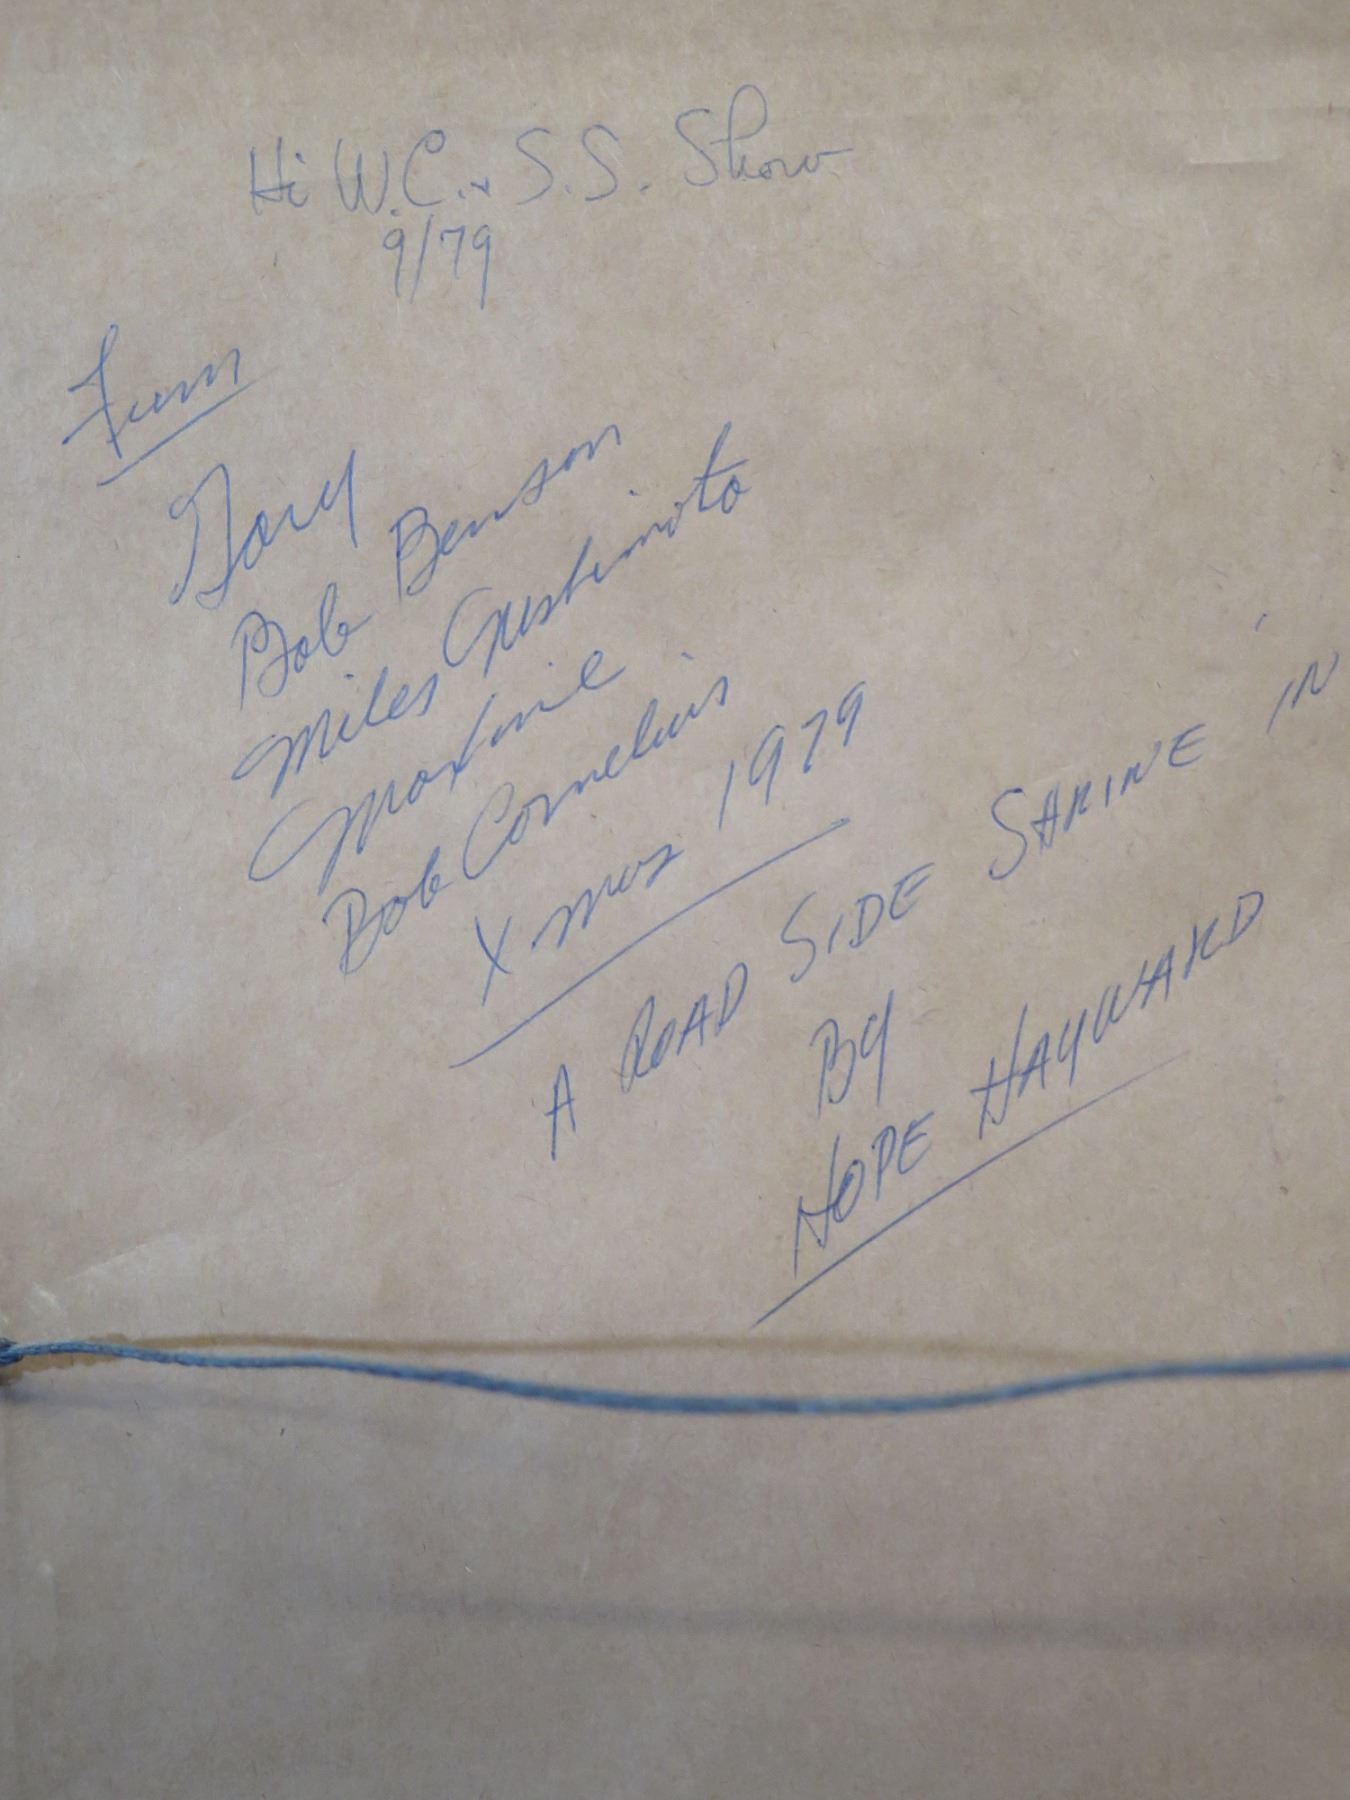 Hi W.C. & S.S. Show
9/79
From
Gary
Bob Benson
Miles
Maxine
Bob Cornelius
Xmas 1979
A ROAD SIDE SHRINE IN
BY
HOPE HAYWARD